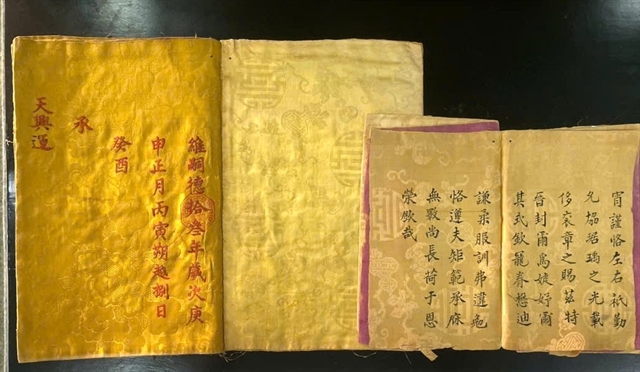 維嗣德拾叁年歲次庚
申正月丙寅朔越捌日
癸酉
承
天興運
宵謹恪左右祇勤
允協琚瑀之光載
侈袞章之賜茲特
晉封爾爲婕妤爾
其式欽寵眷懋迪
謙柔服訓弗違勉
恪遵夫矩範承庥
無斁尚長荷于恩
榮欽哉